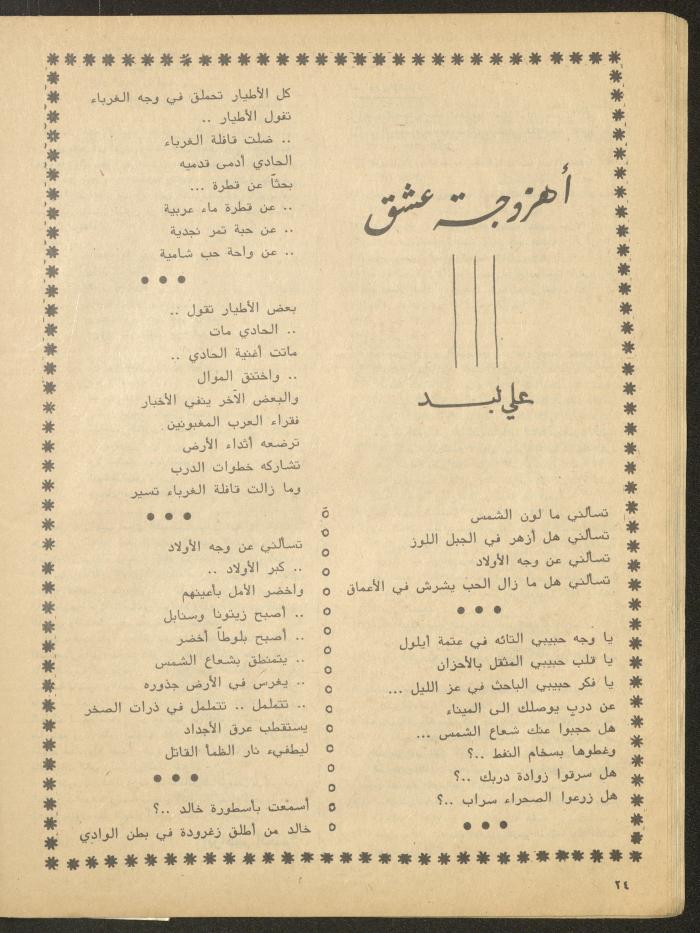 أهزوجة عشق
علي لبد
تسألني ما لون الشمس
تسألني هل أزهر في الجبل اللوز
تسألني عن وجه الأولاد
تسألني هل ما زال الحب يشرش في الأعماق
● ● ●
يا وجه حبيبي التائه في عتمة أيلول
يا قلب حبيبي المثقل بالأحزان
يا فكر حبيبي الباحث في عز الليل ...
عن دربٍ يوصلك الى الميناء
هل حجبوا عنك شعاع الشمس ...
وغطوها بسخام النفط ..؟
هل سرقوا زوادة دربك ..؟
هل زرعوا الصحراء سراب ..؟
● ● ●
كل الأطيار تحملق في وجه الغرباء
تقول الأطيار ..
.. ضلت قافلة الغرباء
الحادي أدمى قدميه
بحثاً عن قطرة ...
.. عن قطرة ماء عربية
.. عن حبة تمر نجدية
.. عن واحة حب شامية
● ● ●
بعض الأطيار تقول ..
.. الحادي مات
ماتت أغنية الحادي ..
.. واختنق الموال
والبعض الآخر ينفي الأخبار
فقراء العرب المغبونين
ترضعه أثداء الأرض
تشاركه خطوات الدرب
وما زالت قافلة الغرباء تسير
● ● ●
تسألني عن وجه الأولاد
.. كبر الأولاد ..
واخضر الأمل بأعينهم
.. أصبح زيتونا وسنابل
.. أصبح بلوطاً أخضر
.. يتمنطق بشعاع الشمس
.. يغرس في الأرض جذوره
.. تتململ .. تتململ في ذرات الصخر
يستقطب عرق الأجداد
ليطفيء نار الظمأ القاتل
● ● ●
أسمعت بأسطورة خالد ..؟
خالد من أطلق زغرودة في بطن الوادي
٢٤